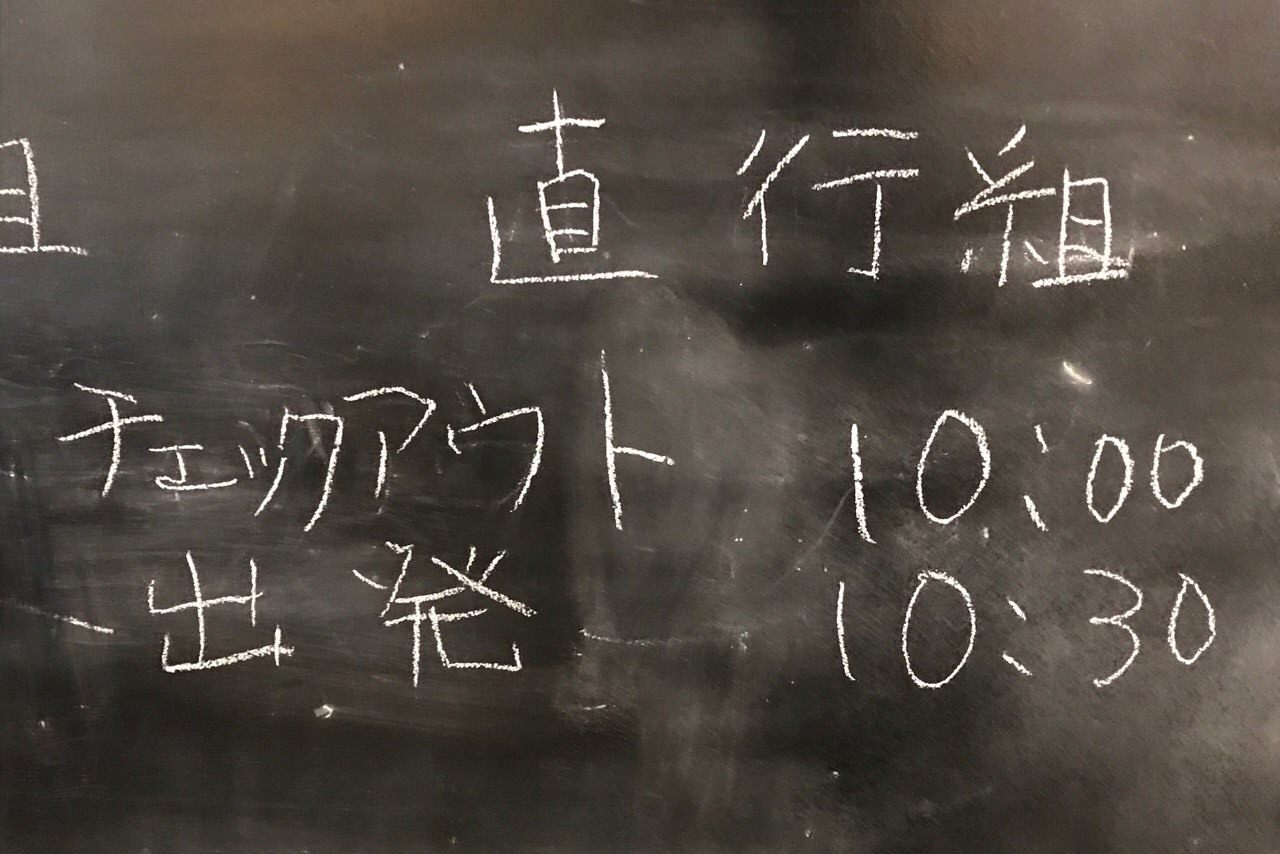 直行組
チェックアウト 10:00
出発 10:30